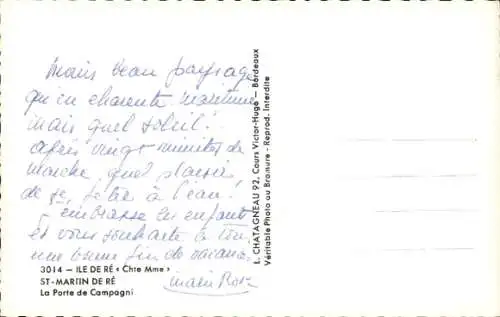 mais beau paysage
qu'en charente maritime
mais quel soleil!
après vingt minutes de
marche, quel plaisir,
de se jeter à l'eau.
J'embrasse les enfants
et vous souhaite à tous
une bonne fin de vacances
3014 — ILE DE RÉ « Chte Mme »
ST-MARTIN DE RÉ
La Porte de Campagni
L. CHATAGNEAU 92, Cours Victor-Hugo — Bordeaux
Véritable Photo au Bromure - Reprod. Interdite